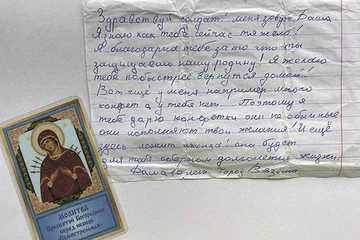 Здравствуй солдат! меня зовут Даша
Я знаю как тебе сейчас тяжело!
Я благодарна тебе за то что ты
защищаешь нашу родину! Я желаю
тебе побыстрее вернуться домой!
Вот ещё у меня например много
конфет а у тебя нет. Поэтому я
тебе дарю конфетки они не обычные
они исполняют твои желания! И ещё
здесь лежит иконка! она будет
для тебя оберегом долголетие жизни.
Даша лет город
МОЛИТВА
Пресвятой Богородице
перед иконой
"Семистрельная"